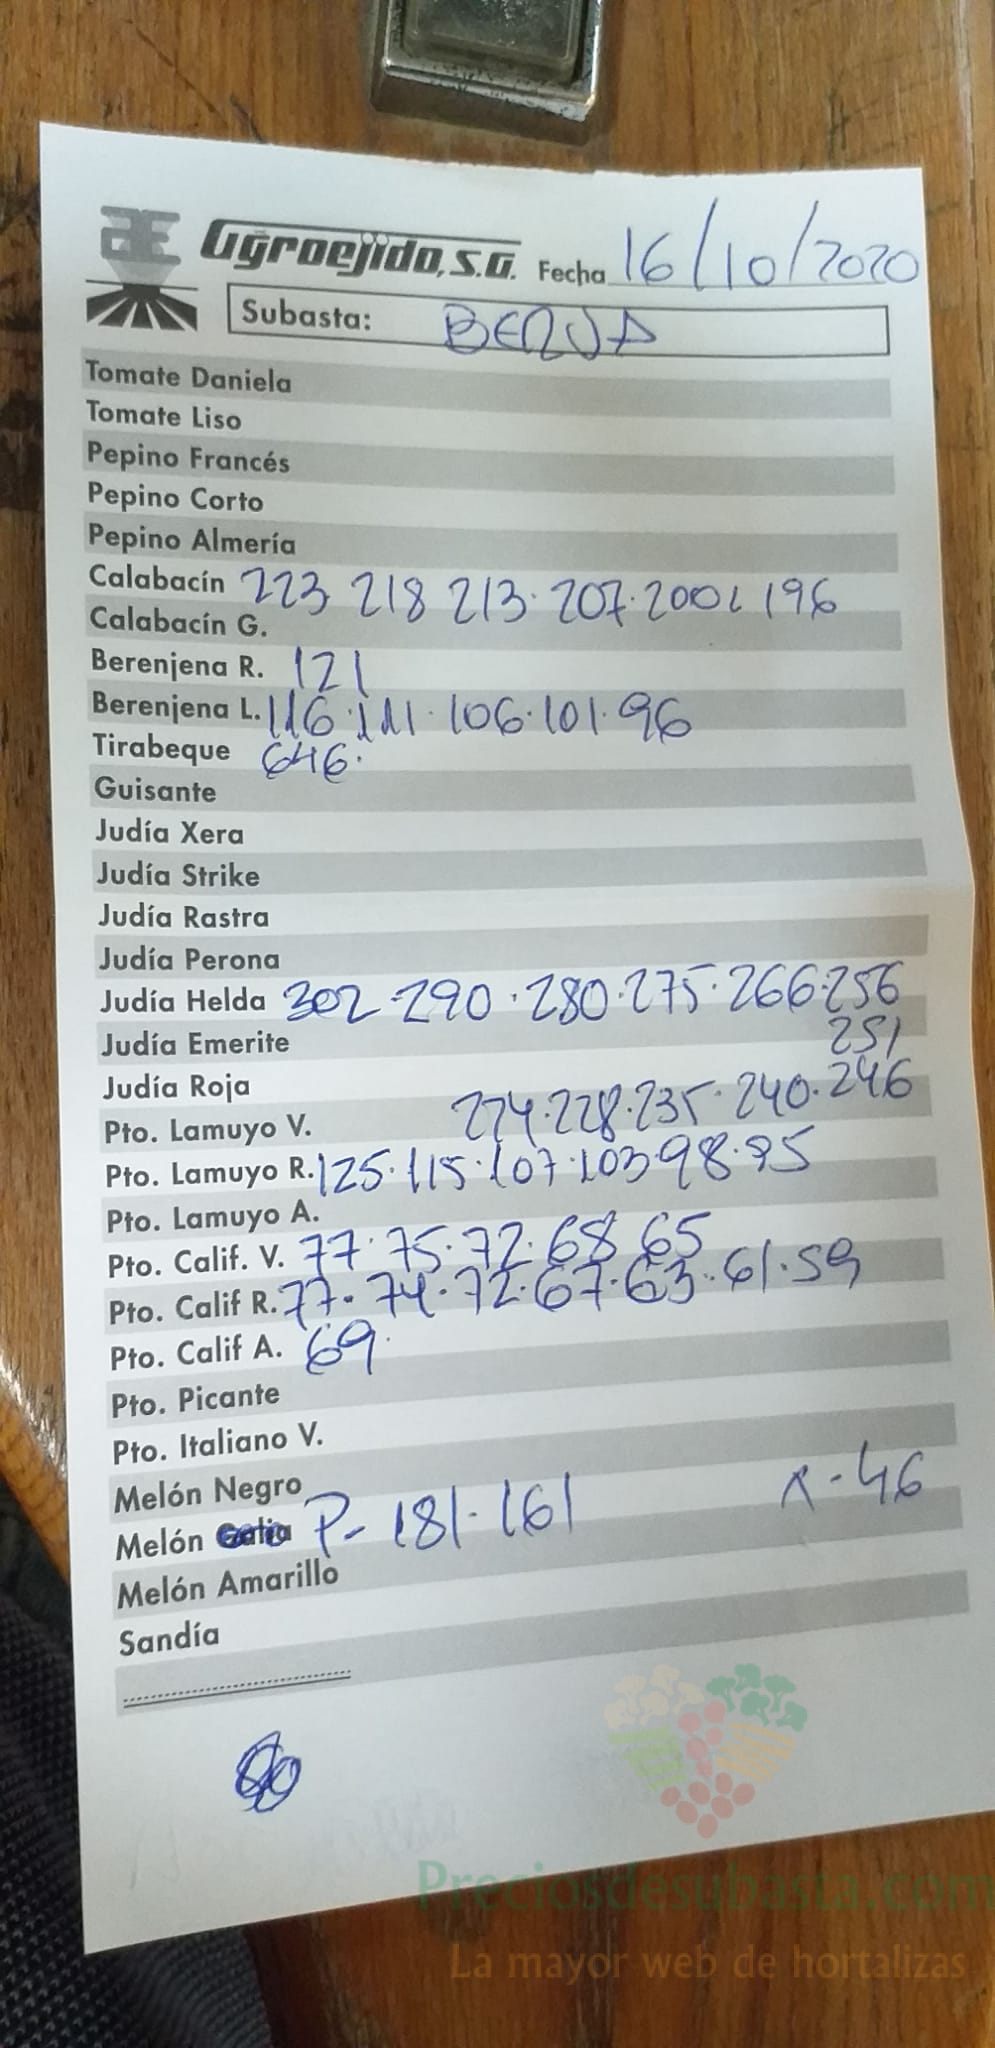 Agroejido, S.A. Fecha 16/10/2020
Subasta: BERJA
Tomate Daniela
Tomate Liso
Pepino Francés
Pepino Corto
Pepino Almería
Calabacín 223 218 213. 207. 200 196
Calabacín G.
Berenjena R. 121
Berenjena L. 116. 111. 106. 101. 96
Tirabeque 646.
Guisante
Judía Xera
Judía Strike
Judía Rastra
Judía Perona
Judía Helda 302 290. 280. 275. 266. 256
251
Judía Emerite
Judía Roja
224. 228. 235. 240. 246
Pto. Lamuyo V.
Pto. Lamuyo R. 125. 115. 107. 103 98. 95
Pto. Lamuyo A.
Pto. Calif. V. 77. 75. 72. 68 65
Pto. Calif R. 77. 74. 72. 67. 63. 61. 59
Pto. Calif A. 69.
Pto. Picante
Pto. Italiano V.
Melón Negro
Melón P- 181. 161 -46
Melón Amarillo
Sandía
Preciosdesubasta.com
La mayor web de hortalizas